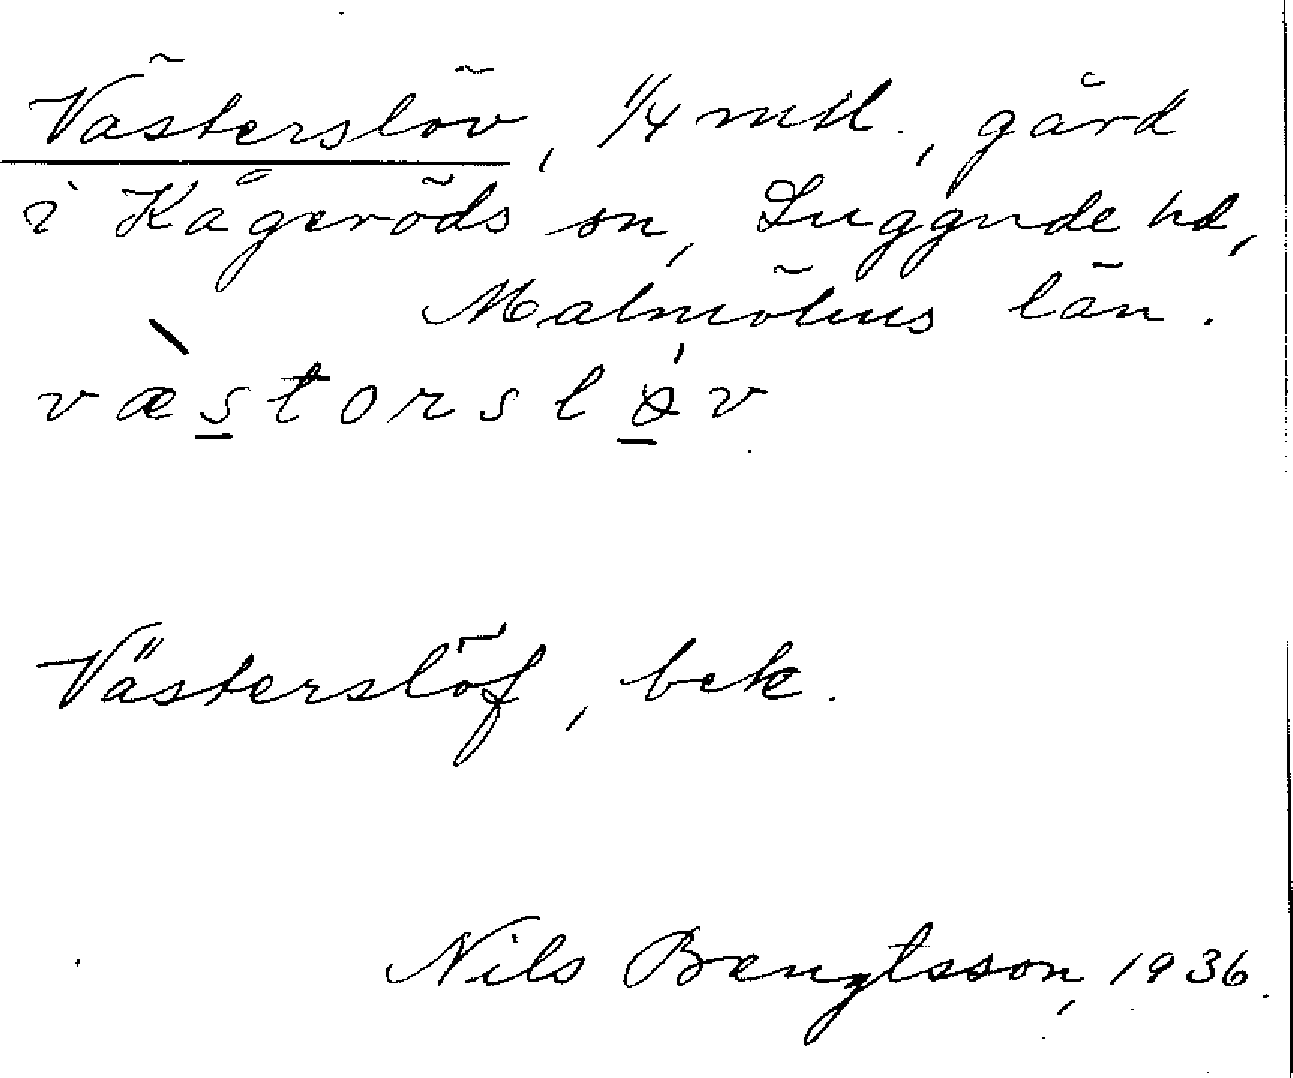 Västerslöv, 1/4 mtl., gård
i Kågeröds sn, Luggude hd,
Malmöhus län.
væ̀storsløv́
Västerslöf, bek.
Nils Bengtsson, 1936.